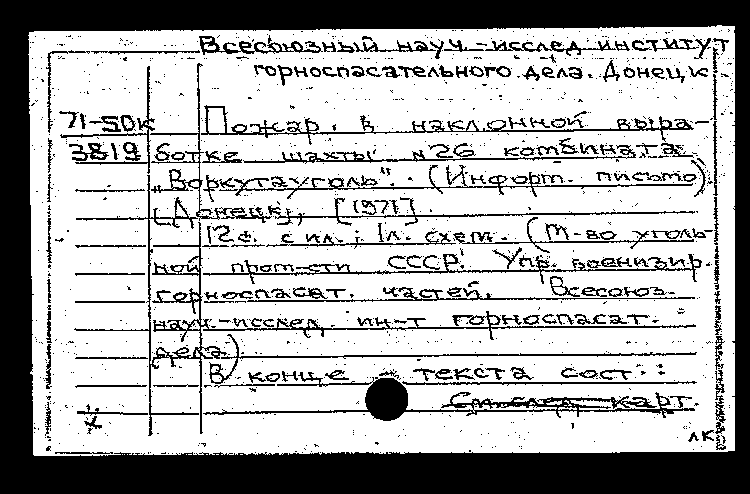 Всесоюзный науч.-исслед институт
горноспасательного дела. Донецк.
71-50к
Пожар. в наклонной выра-
3819 ботке шахты №26 комбината
„Воркутауголь". (Информ. письмо)
[Донецк], [1971].
12с. с ил.; 1л. схем. (М-во уголь-
ной пром-сти СССР. Упр. военизир.
горноспасат. частей. Всесоюз.
науч.-исслед. ин-т горноспасат.
дела)
В конце текста сост.:
См. след. карт.
лк